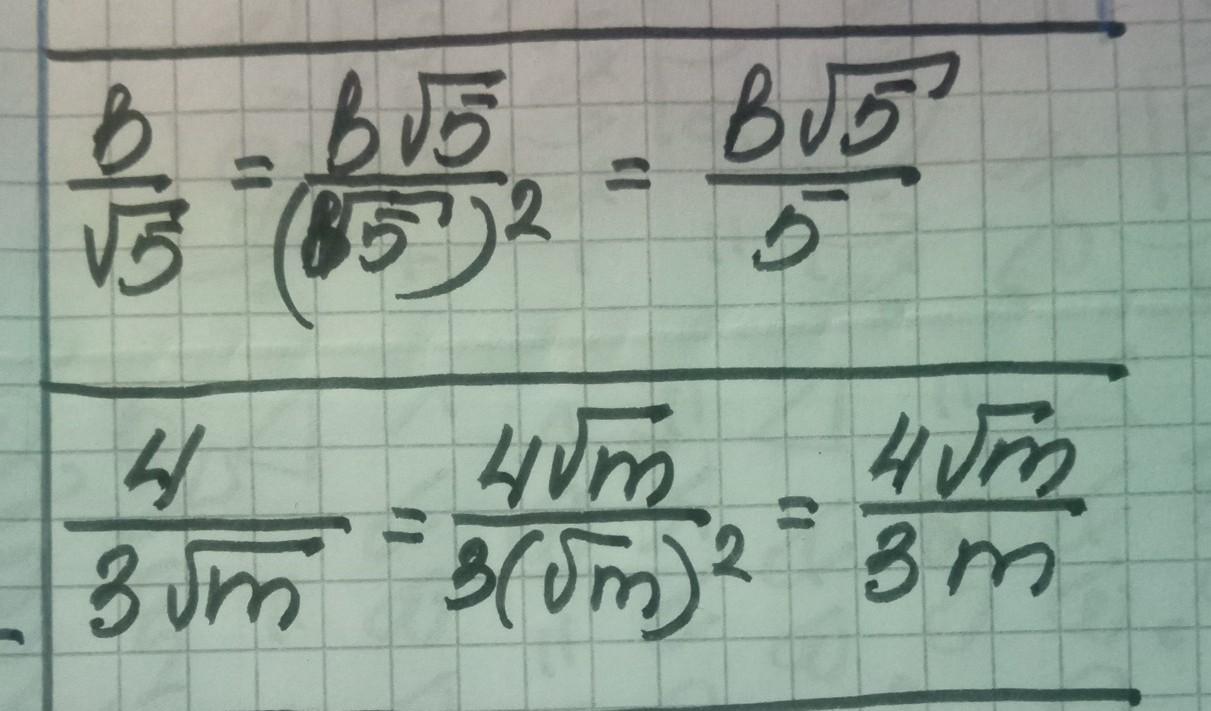 в/√5 = в√5/(√5)² = в√5/5
4/3√m = 4√m/3(√m)² = 4√m/3m